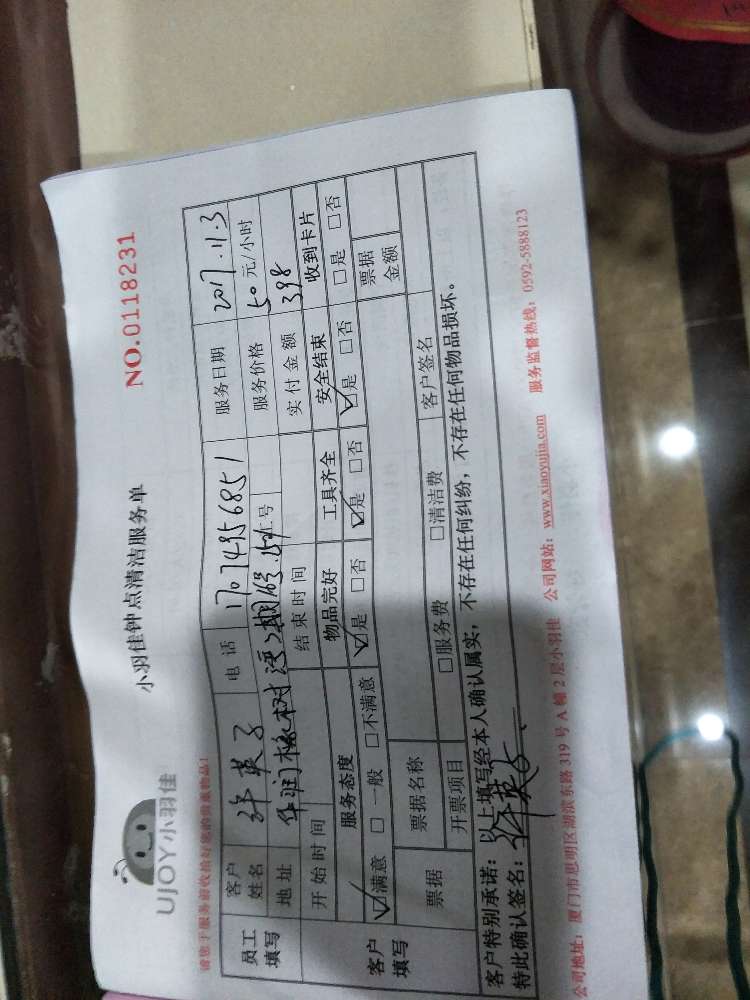 UJOY小羽佳
小羽佳钟点清洁服务单
NO.0118231
员工填写
客户姓名 许英子 电话 17074956851 服务日期 2017.11.3
地址 华润橡树湾 工号 服务价格 50元/小时
开始时间 结束时间 实付金额 398
客户填写
服务态度 物品完好 工具齐全 安全结束 收到卡片
☑满意 □一般 □不满意 ☑是 □否 ☑是 □否 ☑是 □否 □是 □否
票据 票据名称 票据金额
开票项目 □服务费 □清洁费 客户签名
客户特别承诺：以上填写经本人确认属实，不存在任何纠纷，不存在任何物品损坏。
特此确认签名：许英子
公司地址：厦门市思明区湖滨东路319号A幢2层小羽佳 公司网站：www.xiaoyujia.com 服务监督热线：0592-5888123